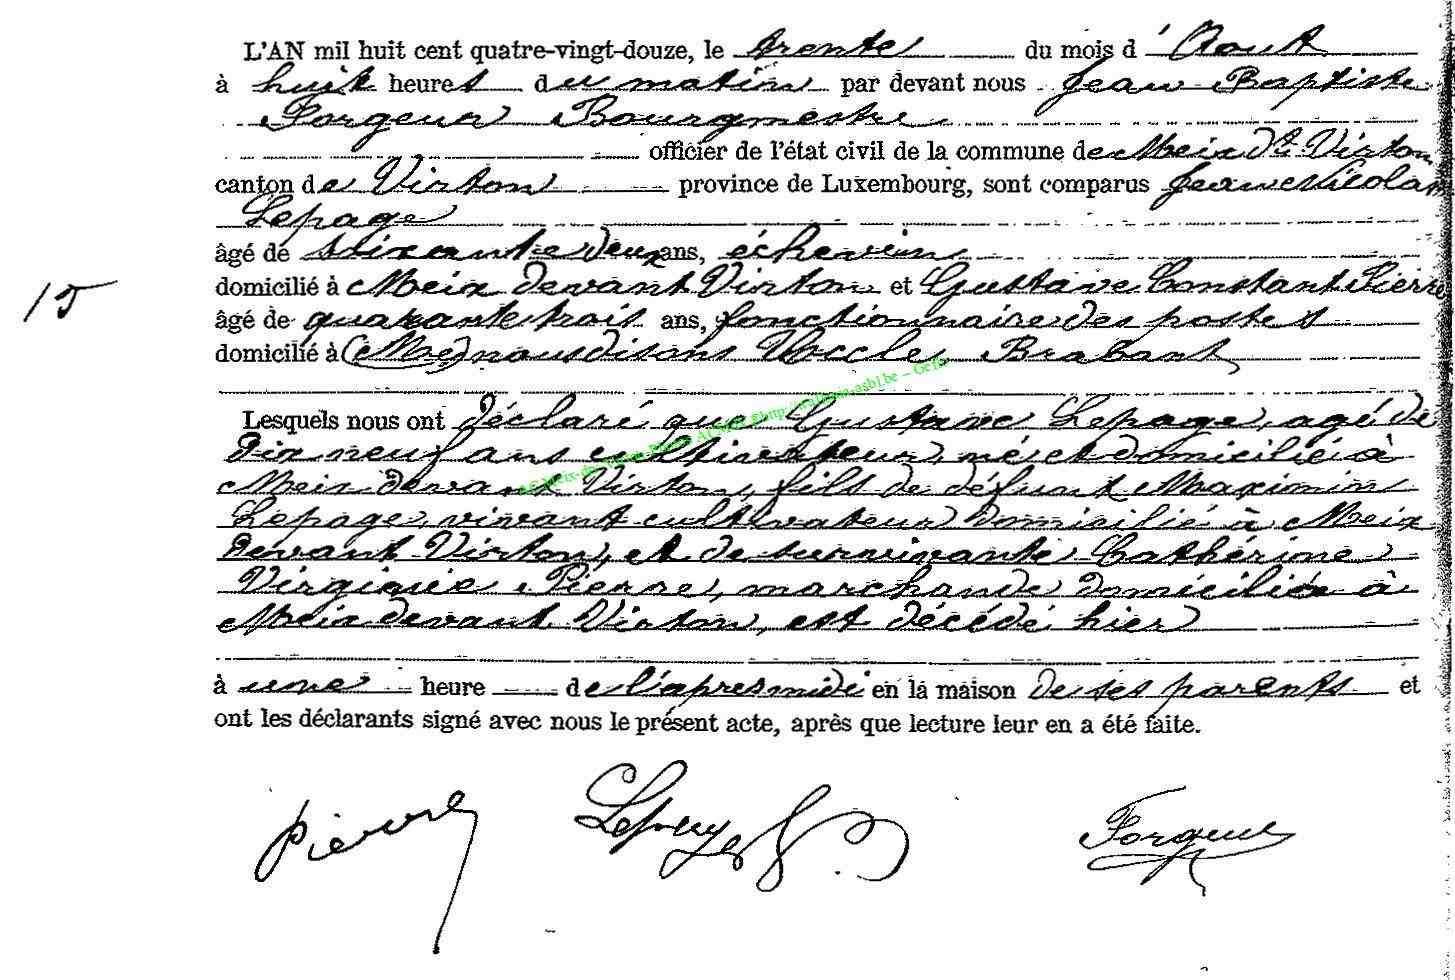 L'AN mil huit cent quatre-vingt-douze, le trente du mois d'Aout
à huit heures du matin par devant nous Jean Baptiste
Forgeur Bourgmestre
officier de l'état civil de la commune de Meix dt Virton
canton de Virton province de Luxembourg, sont comparus Jean Nicolas
Lepage
âgé de soixante deux ans, échevin
15
domicilié à Meix devant Virton et Gustave Constant Pierre
âgé de quarante trois ans, fonctionnaire des postes
domicilié à (Me) nous disons Uccle Brabant
Lesquels nous ont déclaré que Gustave Lepage, agé de
Dix neuf ans cultivateur, né et domicilié à
Meix devant Virton, fils de défunt Maximin
Lepage, vivant cultivateur domicilié à Meix
devant Virton, et de survivante Cathérine
Virginie Pierre, marchande domiciliée à
Meix devant Virton, est décédé hier
à une heure de l'apres midi en la maison de ses parents et
ont les déclarants signé avec nous le présent acte, après que lecture leur en a été faite.
Pierre Lepage Forgeur